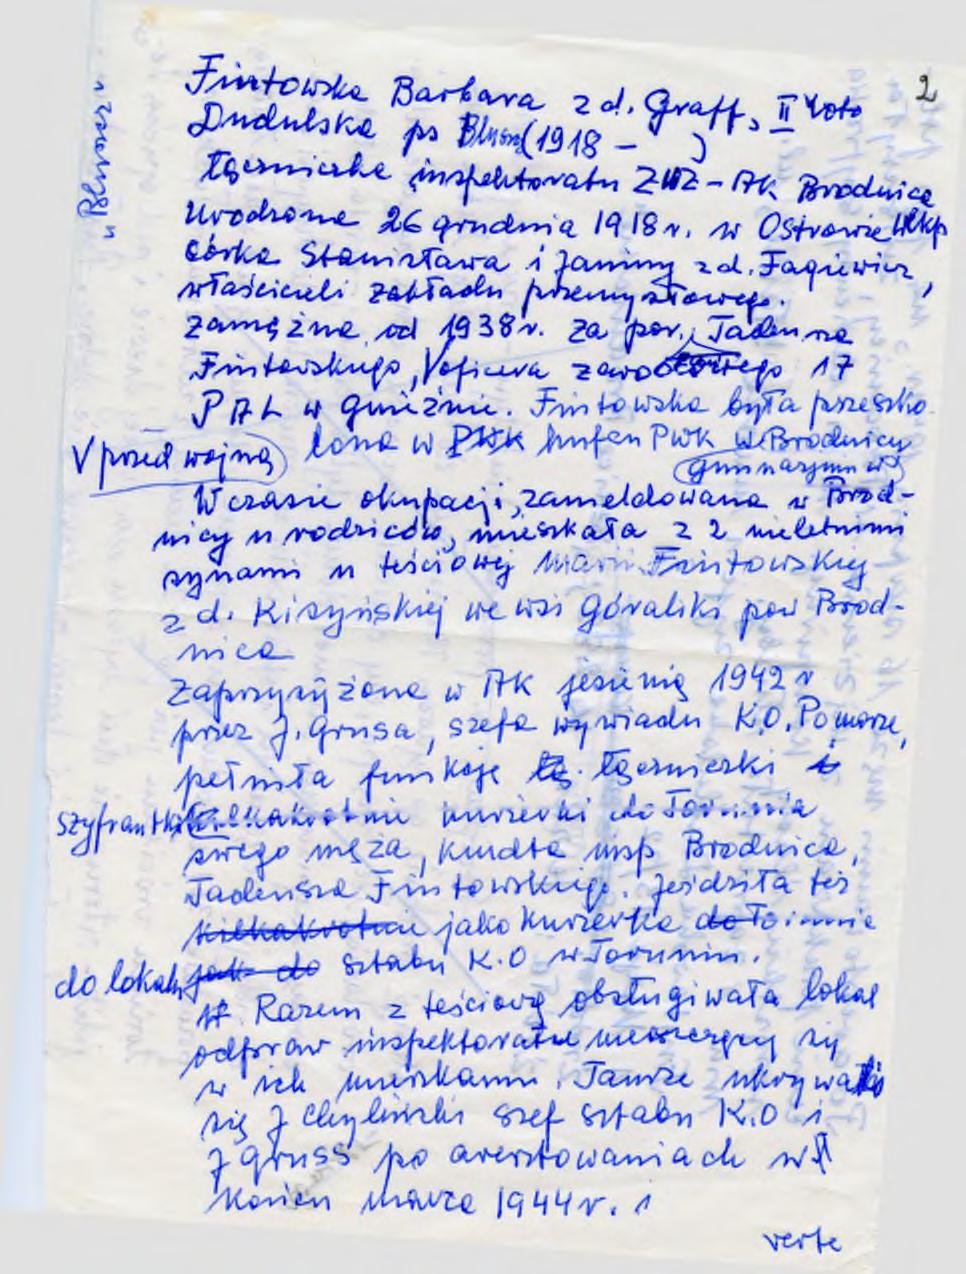 2
Fintowska Barbara z d. Graff, II voto
Dudulska ps Bluszcz (1918 – )
"Bluszcz"
łączniczka inspektoratu ZWZ-AK Brodnica
Urodzona 26 grudnia 1918 r. w Ostrowie Wlkp
córka Stanisława i Janiny z d. Fagiewicz,
właścicieli zakładu przemysłowego.
Zamężna od 1938 r. za por. Tadeusza
Fintowskiego, oficera zawodowego 17
PAL w Gnieźnie. Fintowska była przeszko
V przed wojną lona w PWK hufen PWK w Brodnicy
gimnazjum w
W czasie okupacji, zameldowana w Brod-
nicy u rodziców, mieszkała z 2 nieletnimi
synami u teściowej Marii Fintowskiej
z d. Kiszyńskiej we wsi Góraliki pow Brod-
nica
Zaprzysiężona w AK jesienią 1942 r
przez J. Grusa, szefa wywiadu K.O. Pomorze,
pełniła funkcję łą. łączniczki i
szyfrantki kilkakrotnie kurierki do Torunia
swego męża, kmdta insp Brodnica,
Tadeusza Fintowskiego. Jeździła też
kilkakrotnie jako kurierka do Torunia
do lokalu jak do sztabu K.O w Toruniu.
Razem z teściową obsługiwała lokal
odpraw inspektoratu mieszczący się
w ich mieszkaniu. Tamże ukrywali
się J Chyliński szef sztabu K.O i
J Gruss po aresztowaniach w
koniec marca 1944 r. i
verte